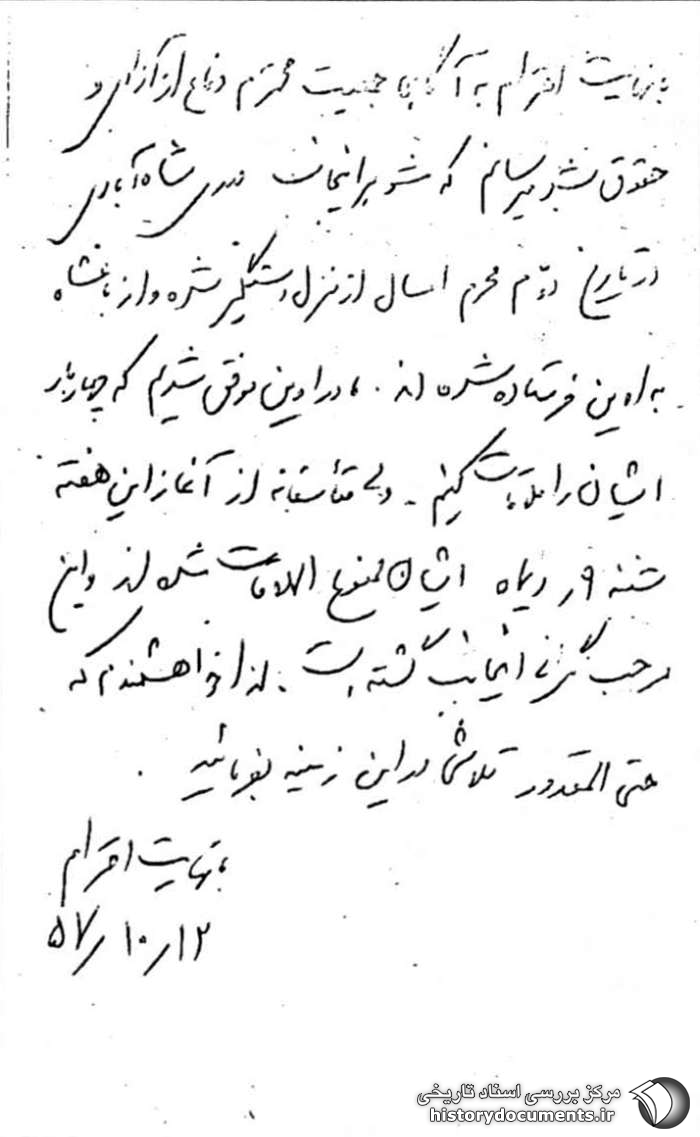 با نهایت احترام به آگاهی جمعیت محترم دفاع از آزادی و
حقوق بشر میرسانم که شوهر اینجانب مهدی شاه آبادی
در تاریخ دوم محرم امسال از منزل دستگیر شده و از باغشاه
به اوین فرستاده شده اند. ما در اوین موفق شدیم که چهار بار
ایشان را ملاقات کنیم. ولی متأسفانه از آغاز این هفته
شنبه ۹ دیماه ایشان ممنوع الملاقات شده اند و این
موجب نگرانی اینجانب گشته است. لذا خواهشمندم که
حتی المقدور تلاشی در این زمینه بفرمائید.
با نهایت احترام
۵۷/۱۰/۱۲
مرکز بررسی اسناد تاریخی
historydocuments.ir